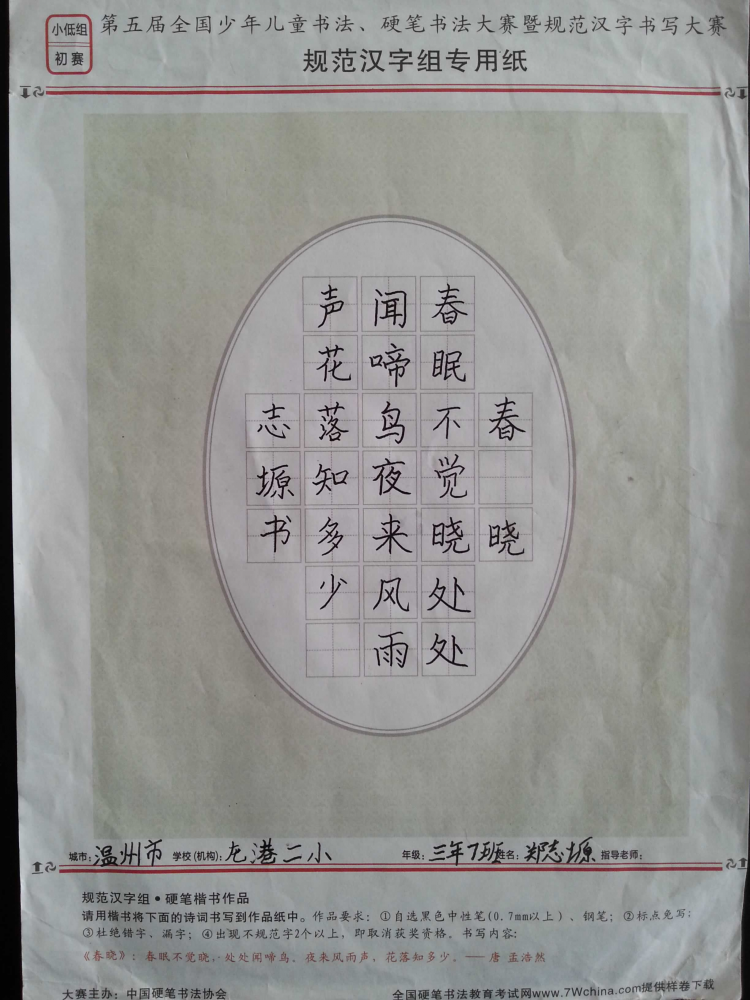 小低组
初赛
第五届全国少年儿童书法、硬笔书法大赛暨规范汉字书写大赛
规范汉字组专用纸
春晓
春眠不觉晓处处
闻啼鸟夜来风雨
声花落知多少
志塬书
城市：温州市 学校(机构)：龙港二小 年级：三年7班 姓名：郑志塬 指导老师：
规范汉字组•硬笔楷书作品
请用楷书将下面的诗词书写到作品纸中。作品要求：①自选黑色中性笔(0.7mm以上)、钢笔；②标点免写；
③杜绝错字、漏字；④出现不规范字2个以上，即取消获奖资格。书写内容：
《春晓》：春眠不觉晓，处处闻啼鸟。夜来风雨声，花落知多少。——唐 孟浩然
大赛主办：中国硬笔书法协会 全国硬笔书法教育考试网www.7Wchina.com提供样卷下载